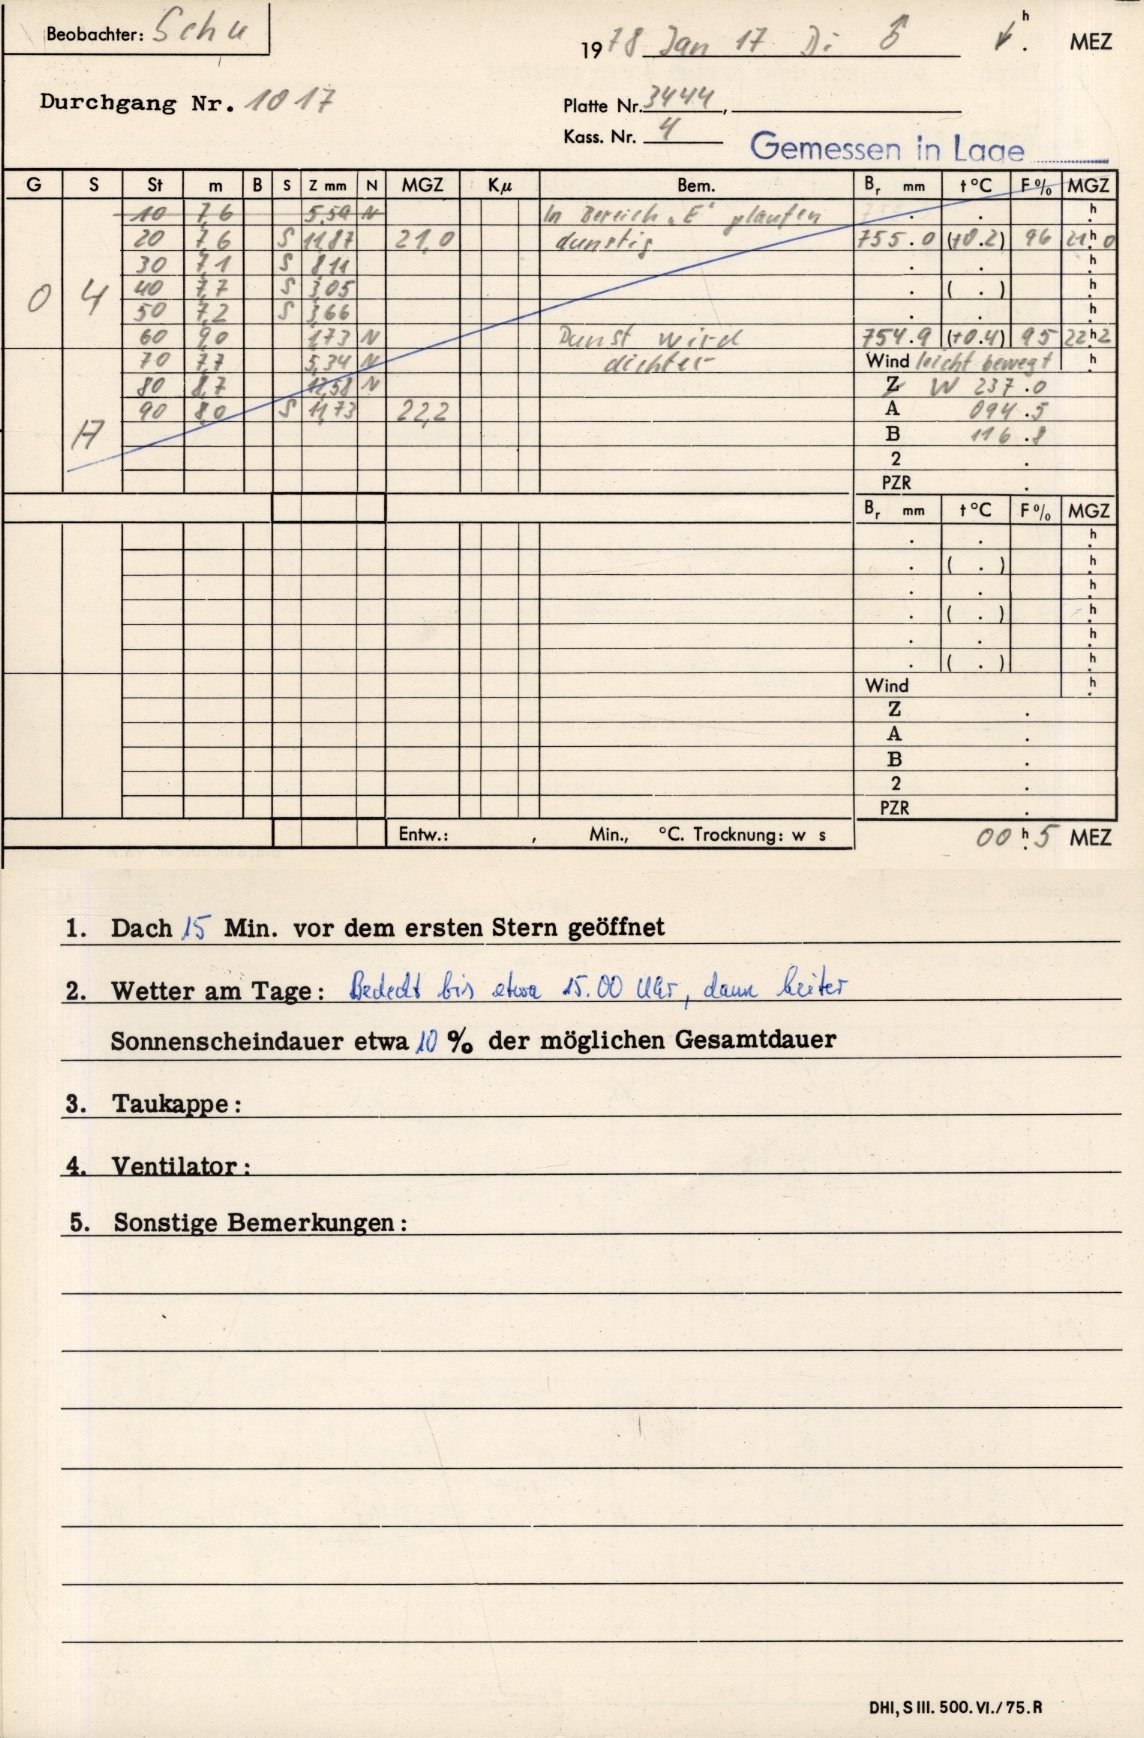 Beobachter: Schu
1978 Jan 17 Di ♂ h . MEZ
Durchgang Nr. 1017
Platte Nr. 3444,
Kass. Nr. 4
Gemessen in Lage
G S St m B S Z mm N MGZ Kμ Bem. Br mm t °C F % MGZ
10 7,6 5,59 N In Bereich „E" . . h
20 7,6 S 11,87 21,0 dunstig 755.0 (+0.2) 96 21h0
30 7,1 S 8,11 . . h
0 4 40 7,7 S 3,05 . ( . ) h
50 7,2 S 3,66 . . h
60 9,0 1,73 N Dunst wird 754.9 (+0.4) 95 22h2
70 7,7 5,34 N dichter Wind leicht bewegt h
80 8,7 N Z W 237.0
90 8,0 S 11,73 22,2 A 094.5
B 116.8
2 .
PZR .
Br mm t °C F % MGZ
. . h
. ( . ) h
. . h
. ( . ) h
. . h
. ( . ) h
Wind h
Z .
A .
B .
2 .
PZR .
Entw.: , Min., °C. Trocknung: w s
00 h 5 MEZ
1. Dach 15 Min. vor dem ersten Stern geöffnet
2. Wetter am Tage: Bedeckt bis etwa 15.00 Uhr, dann heiter
Sonnenscheindauer etwa 10 % der möglichen Gesamtdauer
3. Taukappe:
4. Ventilator:
5. Sonstige Bemerkungen:
DHI, S III. 500. VI./75. R